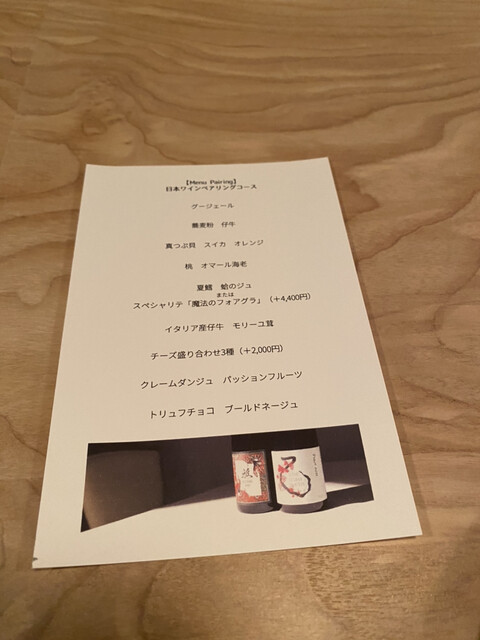 【Menu Pairing】
日本ワインペアリングコース
グージェール
蕎麦粉　仔牛
真つぶ貝　スイカ　オレンジ
桃　オマール海老
夏鱈　蛤のジュ
または
スペシャリテ「魔法のフォアグラ」（＋4,400円）
イタリア産仔牛　モリーユ茸
チーズ盛り合わせ3種（＋2,000円）
クレームダンジュ　パッションフルーツ
トリュフチョコ　ブールドネージュ